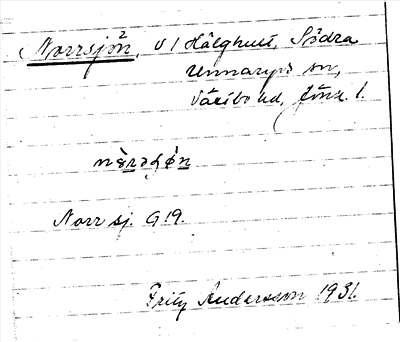 Norrsjön, V / Hälghult, Södra
Unnaryds sn,
Västbo hd, Jönk. l.
Norrsj. G 19.
Fritz Andersson 1931.